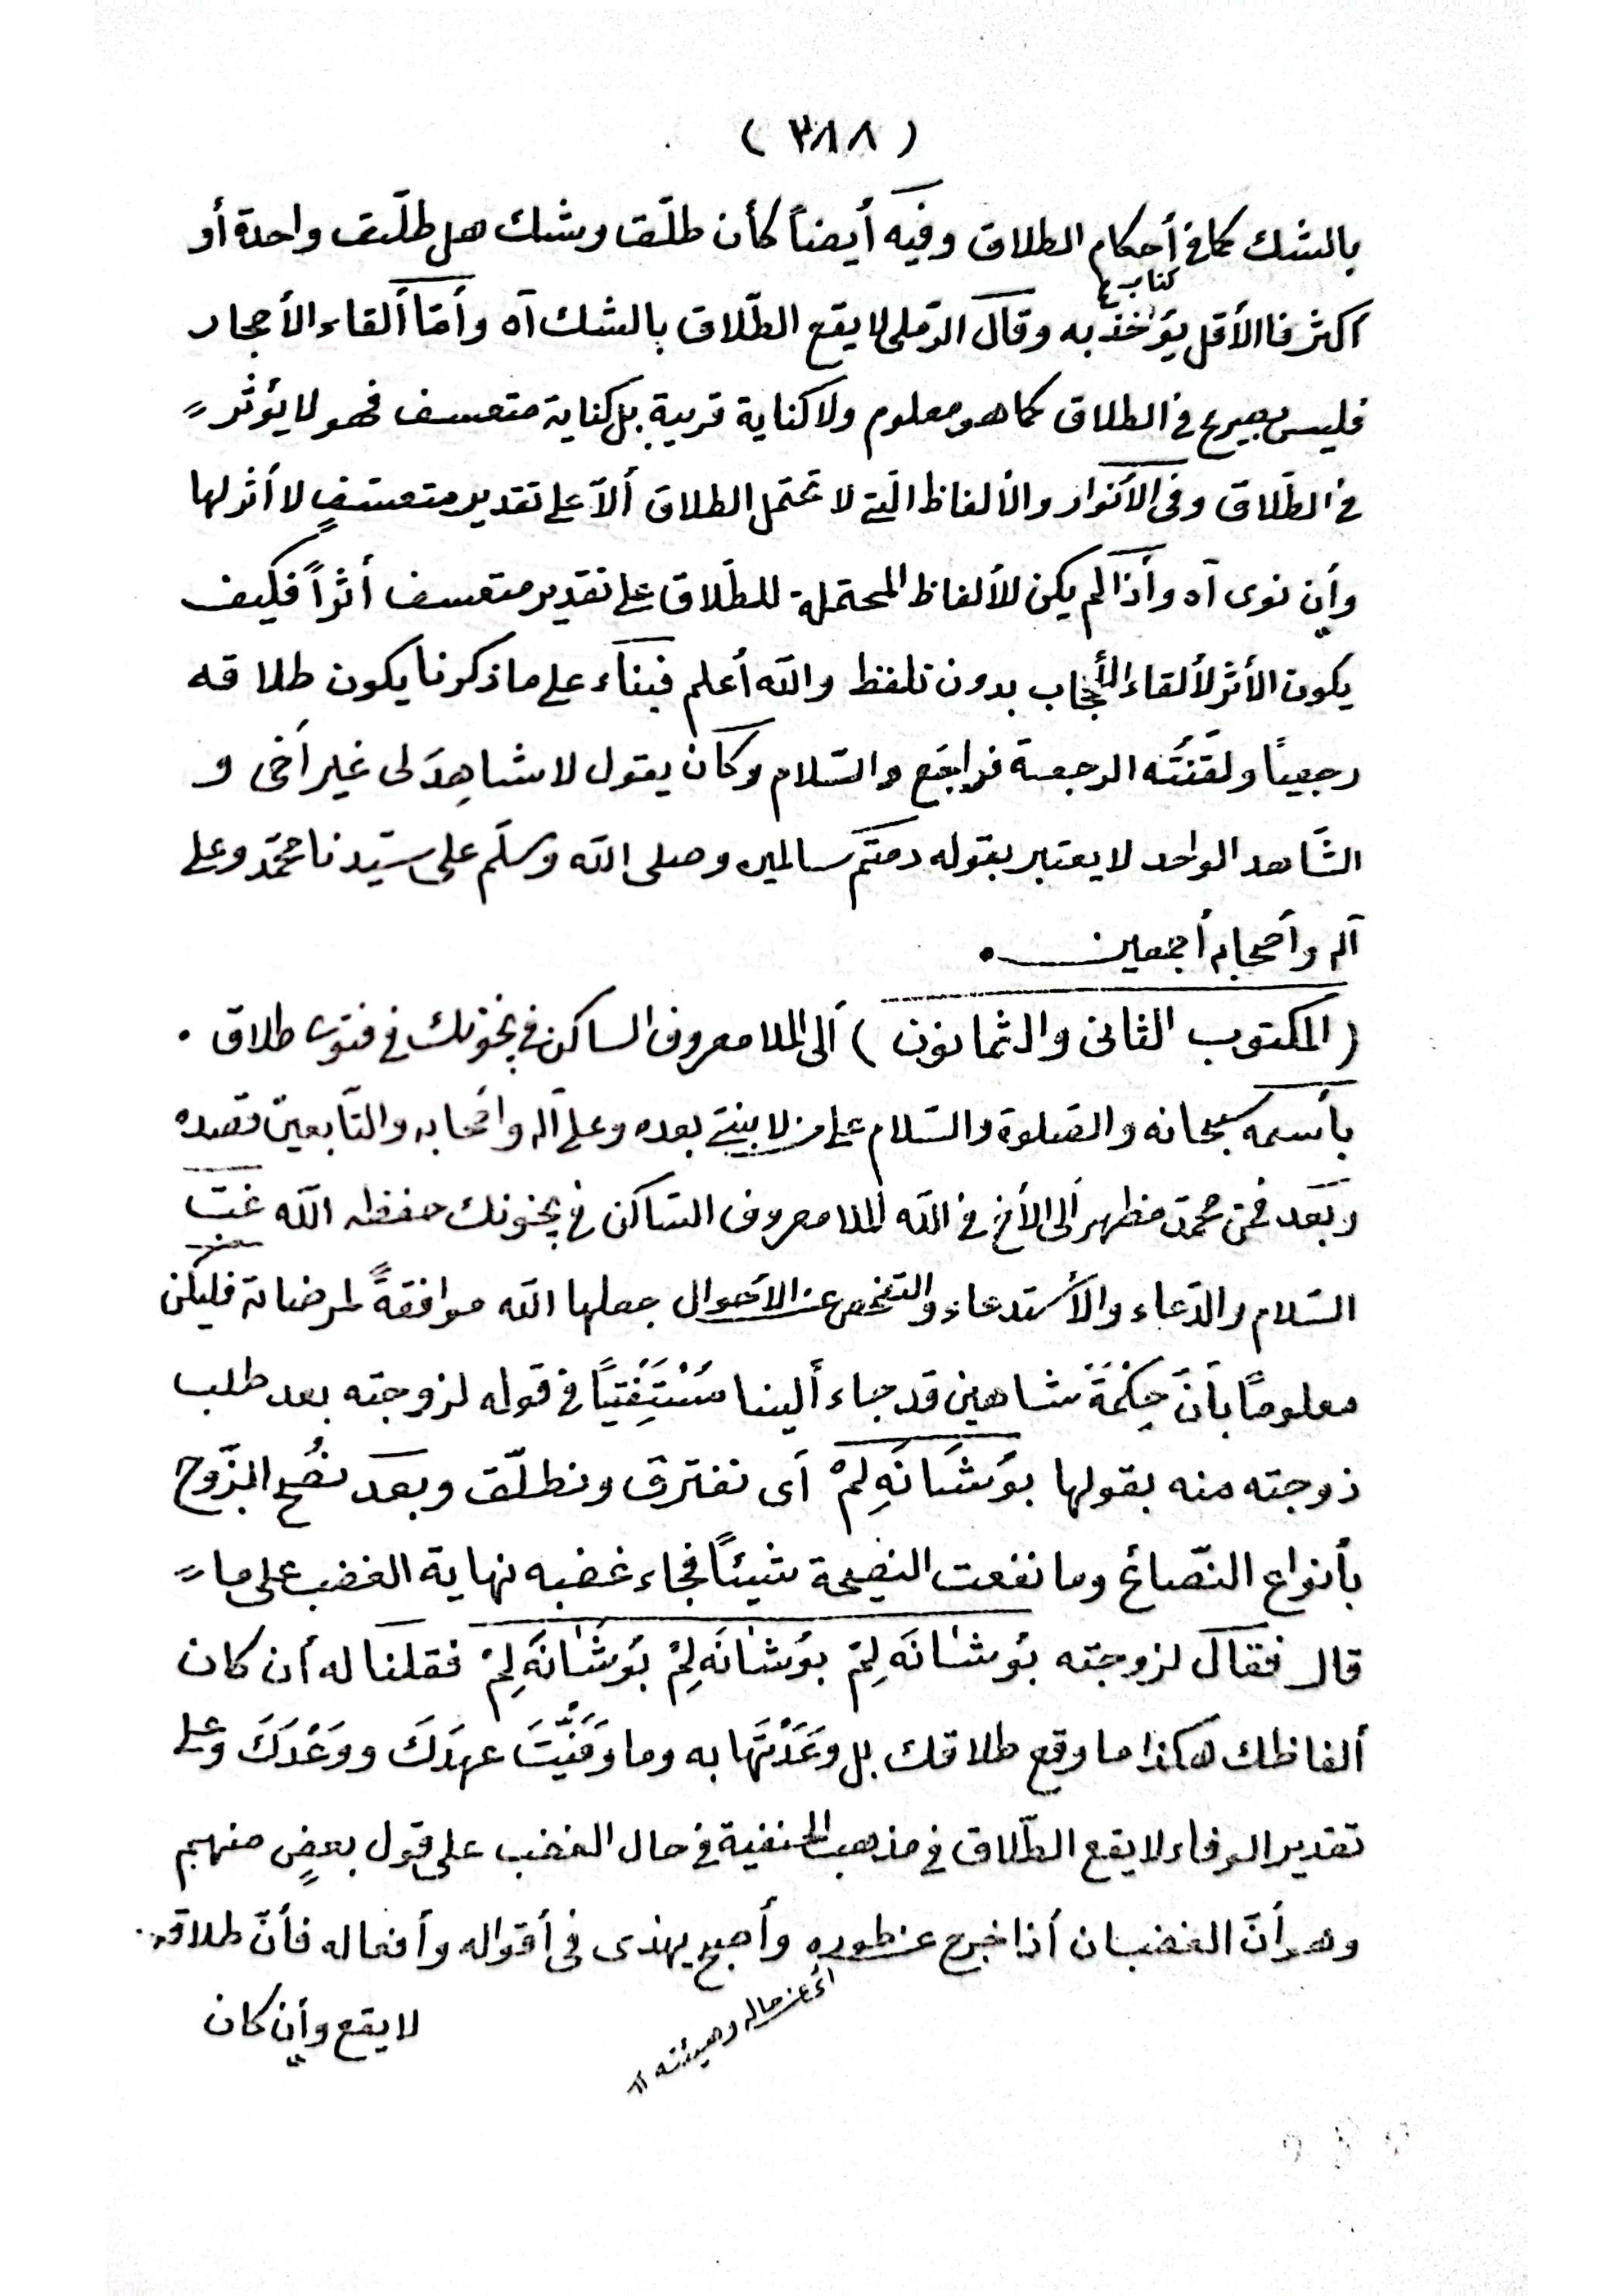 ( ٣٨٨ )
بالشك كما فى أحكام الطلاق وفيه أيضاً كأن طلّق وشك هل طلّق واحدة أو
كتاب
اكثر فاالأقل يؤخذ به وقال الرّملى لا يقع الطّلاق بالشك آه وأمّا ألقاء الأحجار
فليس بصريح فى الطلاق كما هو معلوم ولا كناية قريبة بل كناية متعسف فهو لا يؤثر
فى الطّلاق وفى الأنوار والألفاظ الّتى لا تحتمل الطلاق ألّا على تقدير متعسّفٍ لا أثر لها
وأن نوى آه وأذا لم يكن للألفاظ المحتملة للطّلاق على تقدير متعسف أثراً فكيف
يكون الأثر لألقاء بدون تلفظ والله أعلم فبناء على ما ذكرنا يكون طلاقه
رجعياً ولقنتُه الرجعة فراجَع والسّلام وكان يقول لا شاهِدَ لى غير أخى و
الشّاهد الواحد لا يعتبر بقوله دمتم سالمين وصلى الله وسلّم على سيّدنا محمّد وعلى
آله وأصحابه أجمعين .
( المكتوب الثانى والثمانون ) ألى الملا معروف الساكن فى فى فتوى طلاق .
بأسمه سبحانه والصّلوة والسّلام على من لا نبىّ بعده وعلى آله وأصحابه والتّابعين قصده
وبَعد فمن محمّد مظهر ألى الأخ فى الله الملا معروف السّاكن فى حفظه الله غبّ
السّلام والدّعاء والأستدعاء والتفحص عن الأحوال جعلها الله موافقةً لمرضاته فليكن
معلومًا بأنّ حِكْمَةَ شاهين قد جاء ألينا مُسْتَفْتِيًا فى قوله لزوجته بعد طلب
زوجته منه بقولها بوَشَانَه لِمْ أى نفترق ونطلّق وبعد نُصْح الزّوج
بأنواع النّصائح وما نفعت النصيحة شيئاً فجاء غضبه نهاية الغضب على ما
قال فقال لزوجته بوَشانَه لِمْ بوَشانَه لِمْ بوَشَانَه لِمْ فقلنا له أن كان
ألفاظك هكذا ما وقع طلاقك بل وعَدْتَها به وما وَفَّيْتَ عهدَكَ ووَعْدَكَ وعلى
تقدير الوفاء لا يقع الطّلاق فى مذهب الحنفية فى حال الغضب على قول بعضٍ منهم
وهو أنّ الغضبان أذا خرج عن طوره وأصبح يهذى فى أقواله وأفعاله فأنّ طلاقه
أى عن حاله وهيئته
لا يقع وأن كان